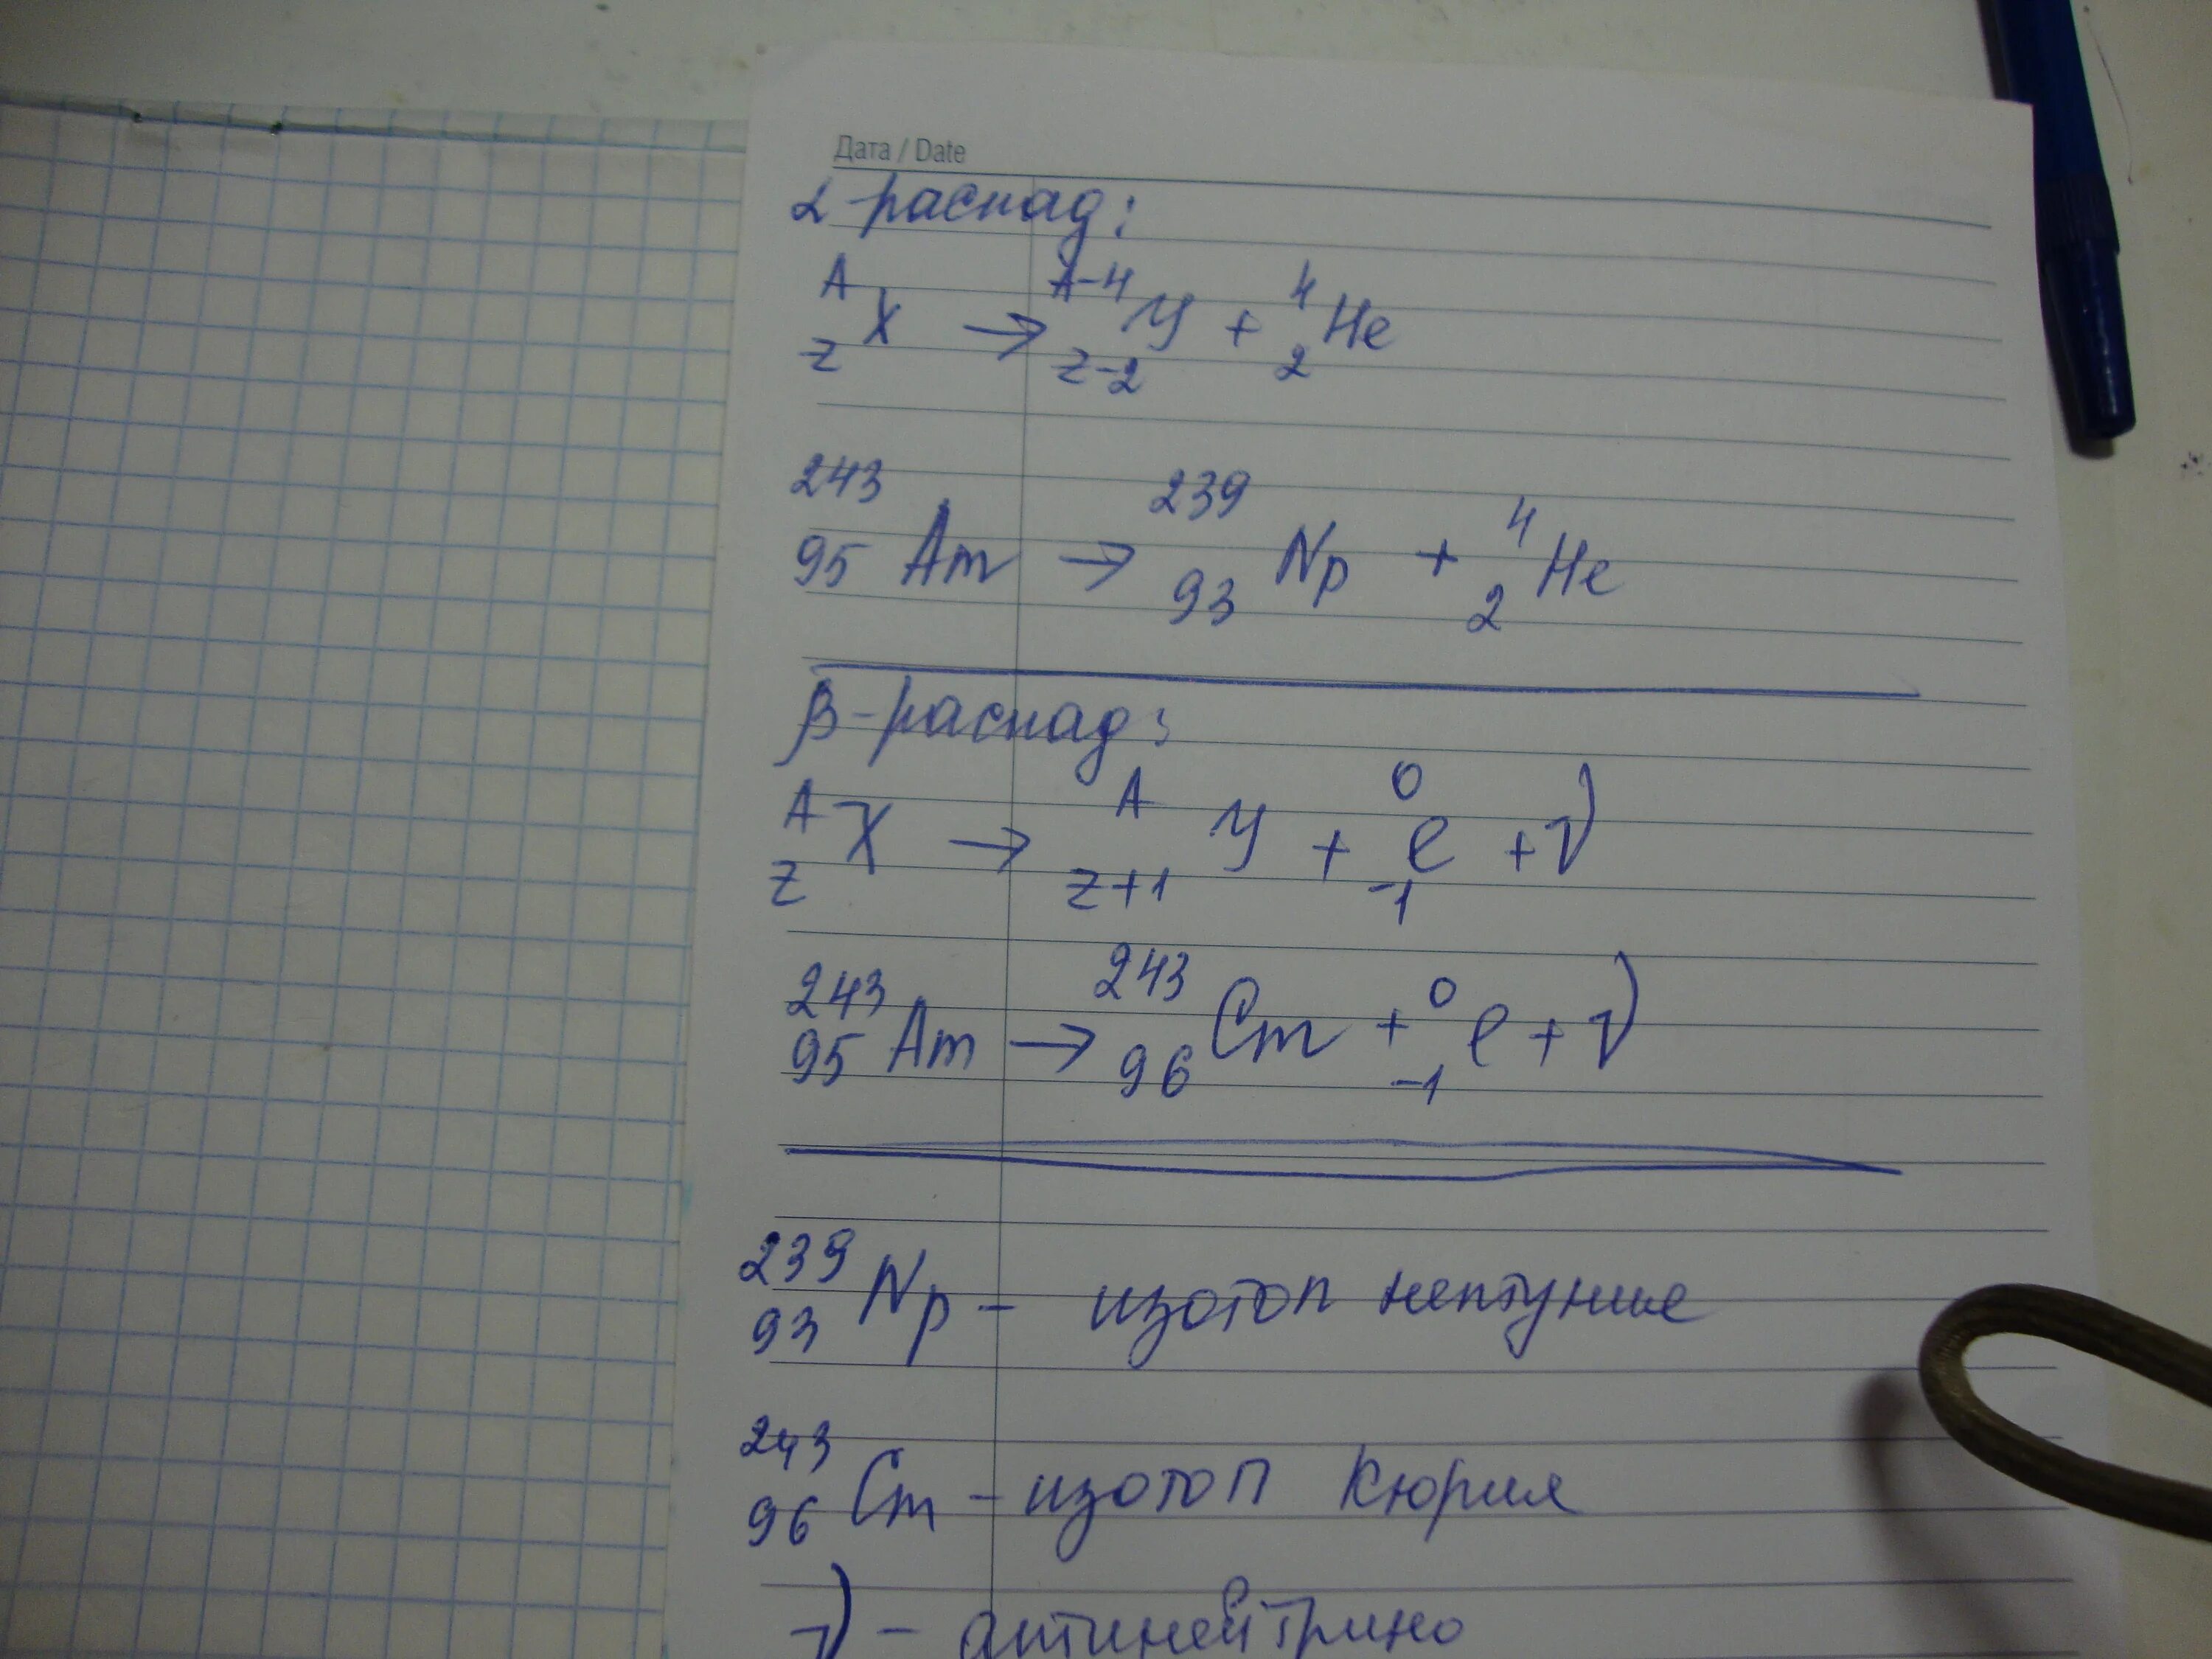 Дата / Date
α распад:
ᴬ_Z X → ᴬ⁻⁴_Z-2 Y + ⁴₂He
²⁴³₉₅Am → ²³⁹₉₃Np + ⁴₂He
β-распад:
ᴬ_Z X → ᴬ_Z+1 Y + ⁰₋₁e + ν
²⁴³₉₅Am → ²⁴³₉₆Cm + ⁰₋₁e + ν
²³⁹₉₃Np – изотоп нептуния
²⁴³₉₆Cm – изотоп кюрия
ν – антинейтрино